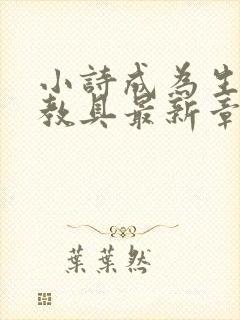 小詩成為生
教具最新章
葉葉然